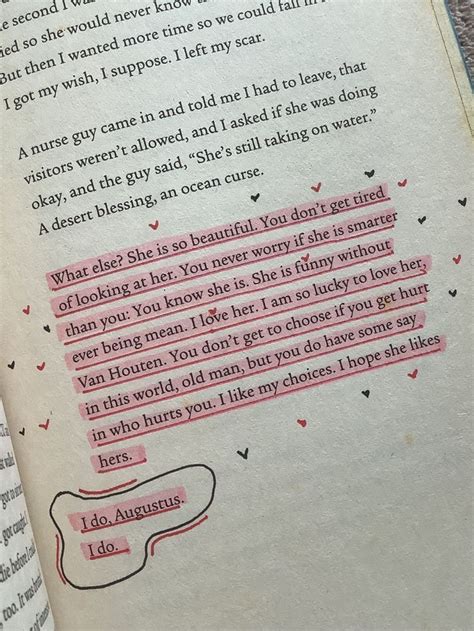 second I
so she would never know
But then I wanted more time so we could fall in
I got my wish, I suppose. I left my scar.
A nurse guy came in and told me I had to leave, that
visitors weren't allowed, and I asked if she was doing
okay, and the guy said, "She's still taking on water."
A desert blessing, an ocean curse.
What else? She is so beautiful. You don't get tired
of looking at her. You never worry if she is smarter
than you: You know she is. She is funny without
ever being mean. I love her. I am so lucky to love her,
Van Houten. You don't get to choose if you get hurt
in this world, old man, but you do have some say
in who hurts you. I like my choices. I hope she likes
hers.
I do, Augustus.
I do.
got
die before I
too. It was